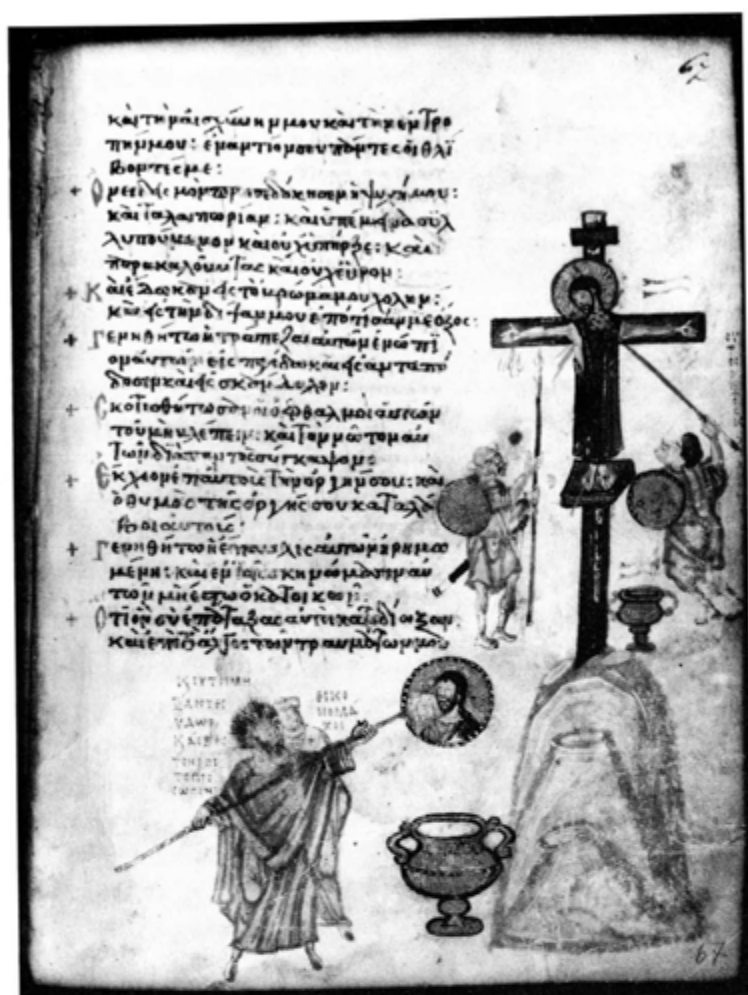 καὶ τὴν αἰσχύνην μου καὶ τὴν ἐντρο
πήν μου: ἐναντίον σου πάντες οἱ θλί
βοντές με:
+ Ὀνειδισμὸν προσεδόκησεν ἡ ψυχή μου:
καὶ ταλαιπωρίαν: καὶ ὑπέμεινα συλ
λυπούμενον καὶ οὐχ ὑπῆρξε: καὶ
παρακαλοῦντας καὶ οὐχ εὗρον:
+ Καὶ ἔδωκαν εἰς τὸ βρῶμά μου χολήν:
καὶ εἰς τὴν δίψαν μου ἐπότισάν με ὄξος:
+ Γενηθήτω ἡ τράπεζα αὐτῶν ἐνώπι
ον αὐτῶν εἰς παγίδα καὶ εἰς ἀνταπό
δοσιν καὶ εἰς σκάνδαλον:
+ Σκοτισθήτωσαν οἱ ὀφθαλμοὶ αὐτῶν
τοῦ μὴ βλέπειν: καὶ τὸν νῶτον αὐ
τῶν διαπαντὸς σύγκαμψον:
+ Ἔκχεον ἐπ' αὐτοὺς τὴν ὀργήν σου: καὶ
ὁ θυμὸς τῆς ὀργῆς σου καταλά
βοι αὐτούς:
+ Γενηθήτω ἡ ἔπαυλις αὐτῶν ἠρημω
μένη: καὶ ἐν τοῖς σκηνώμασιν αὐ
τῶν μὴ ἔστω ὁ κατοικῶν:
+ Ὅτι ὃν σὺ ἐπάταξας αὐτοὶ κατεδίωξαν:
καὶ ἐπὶ τὸ ἄλγος τῶν τραυμάτων μου
67